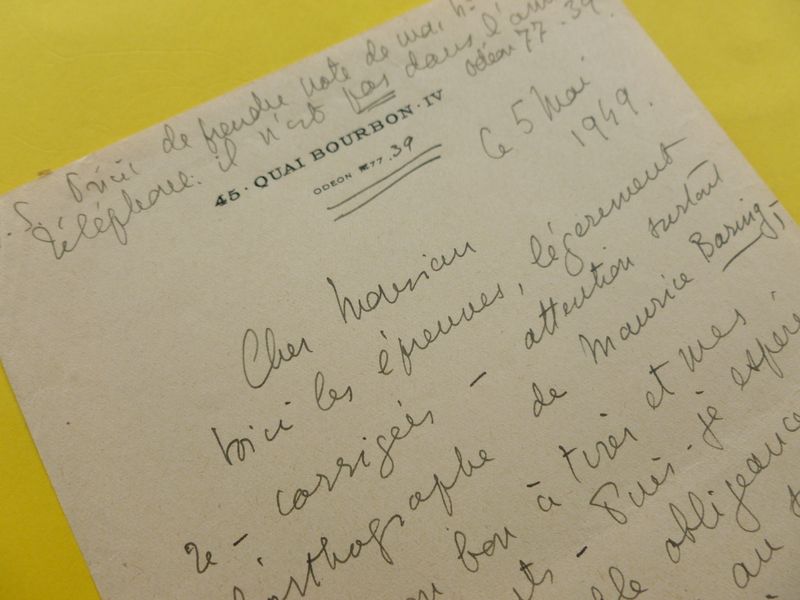 P.S. Prière de prendre note de mon n°
téléphone: il n'est pas dans l'annu
odéon 77.39.
45 · QUAI BOURBON · IV
ODEON 77.39
Ce 5 Mai
1949.
Cher Monsieur
Voici les épreuves, légèrement
re-corrigées - attention surtout
l'orthographe de Maurice Baring,
bon à tirer et mes
Puis-je espérer
obligeance
au